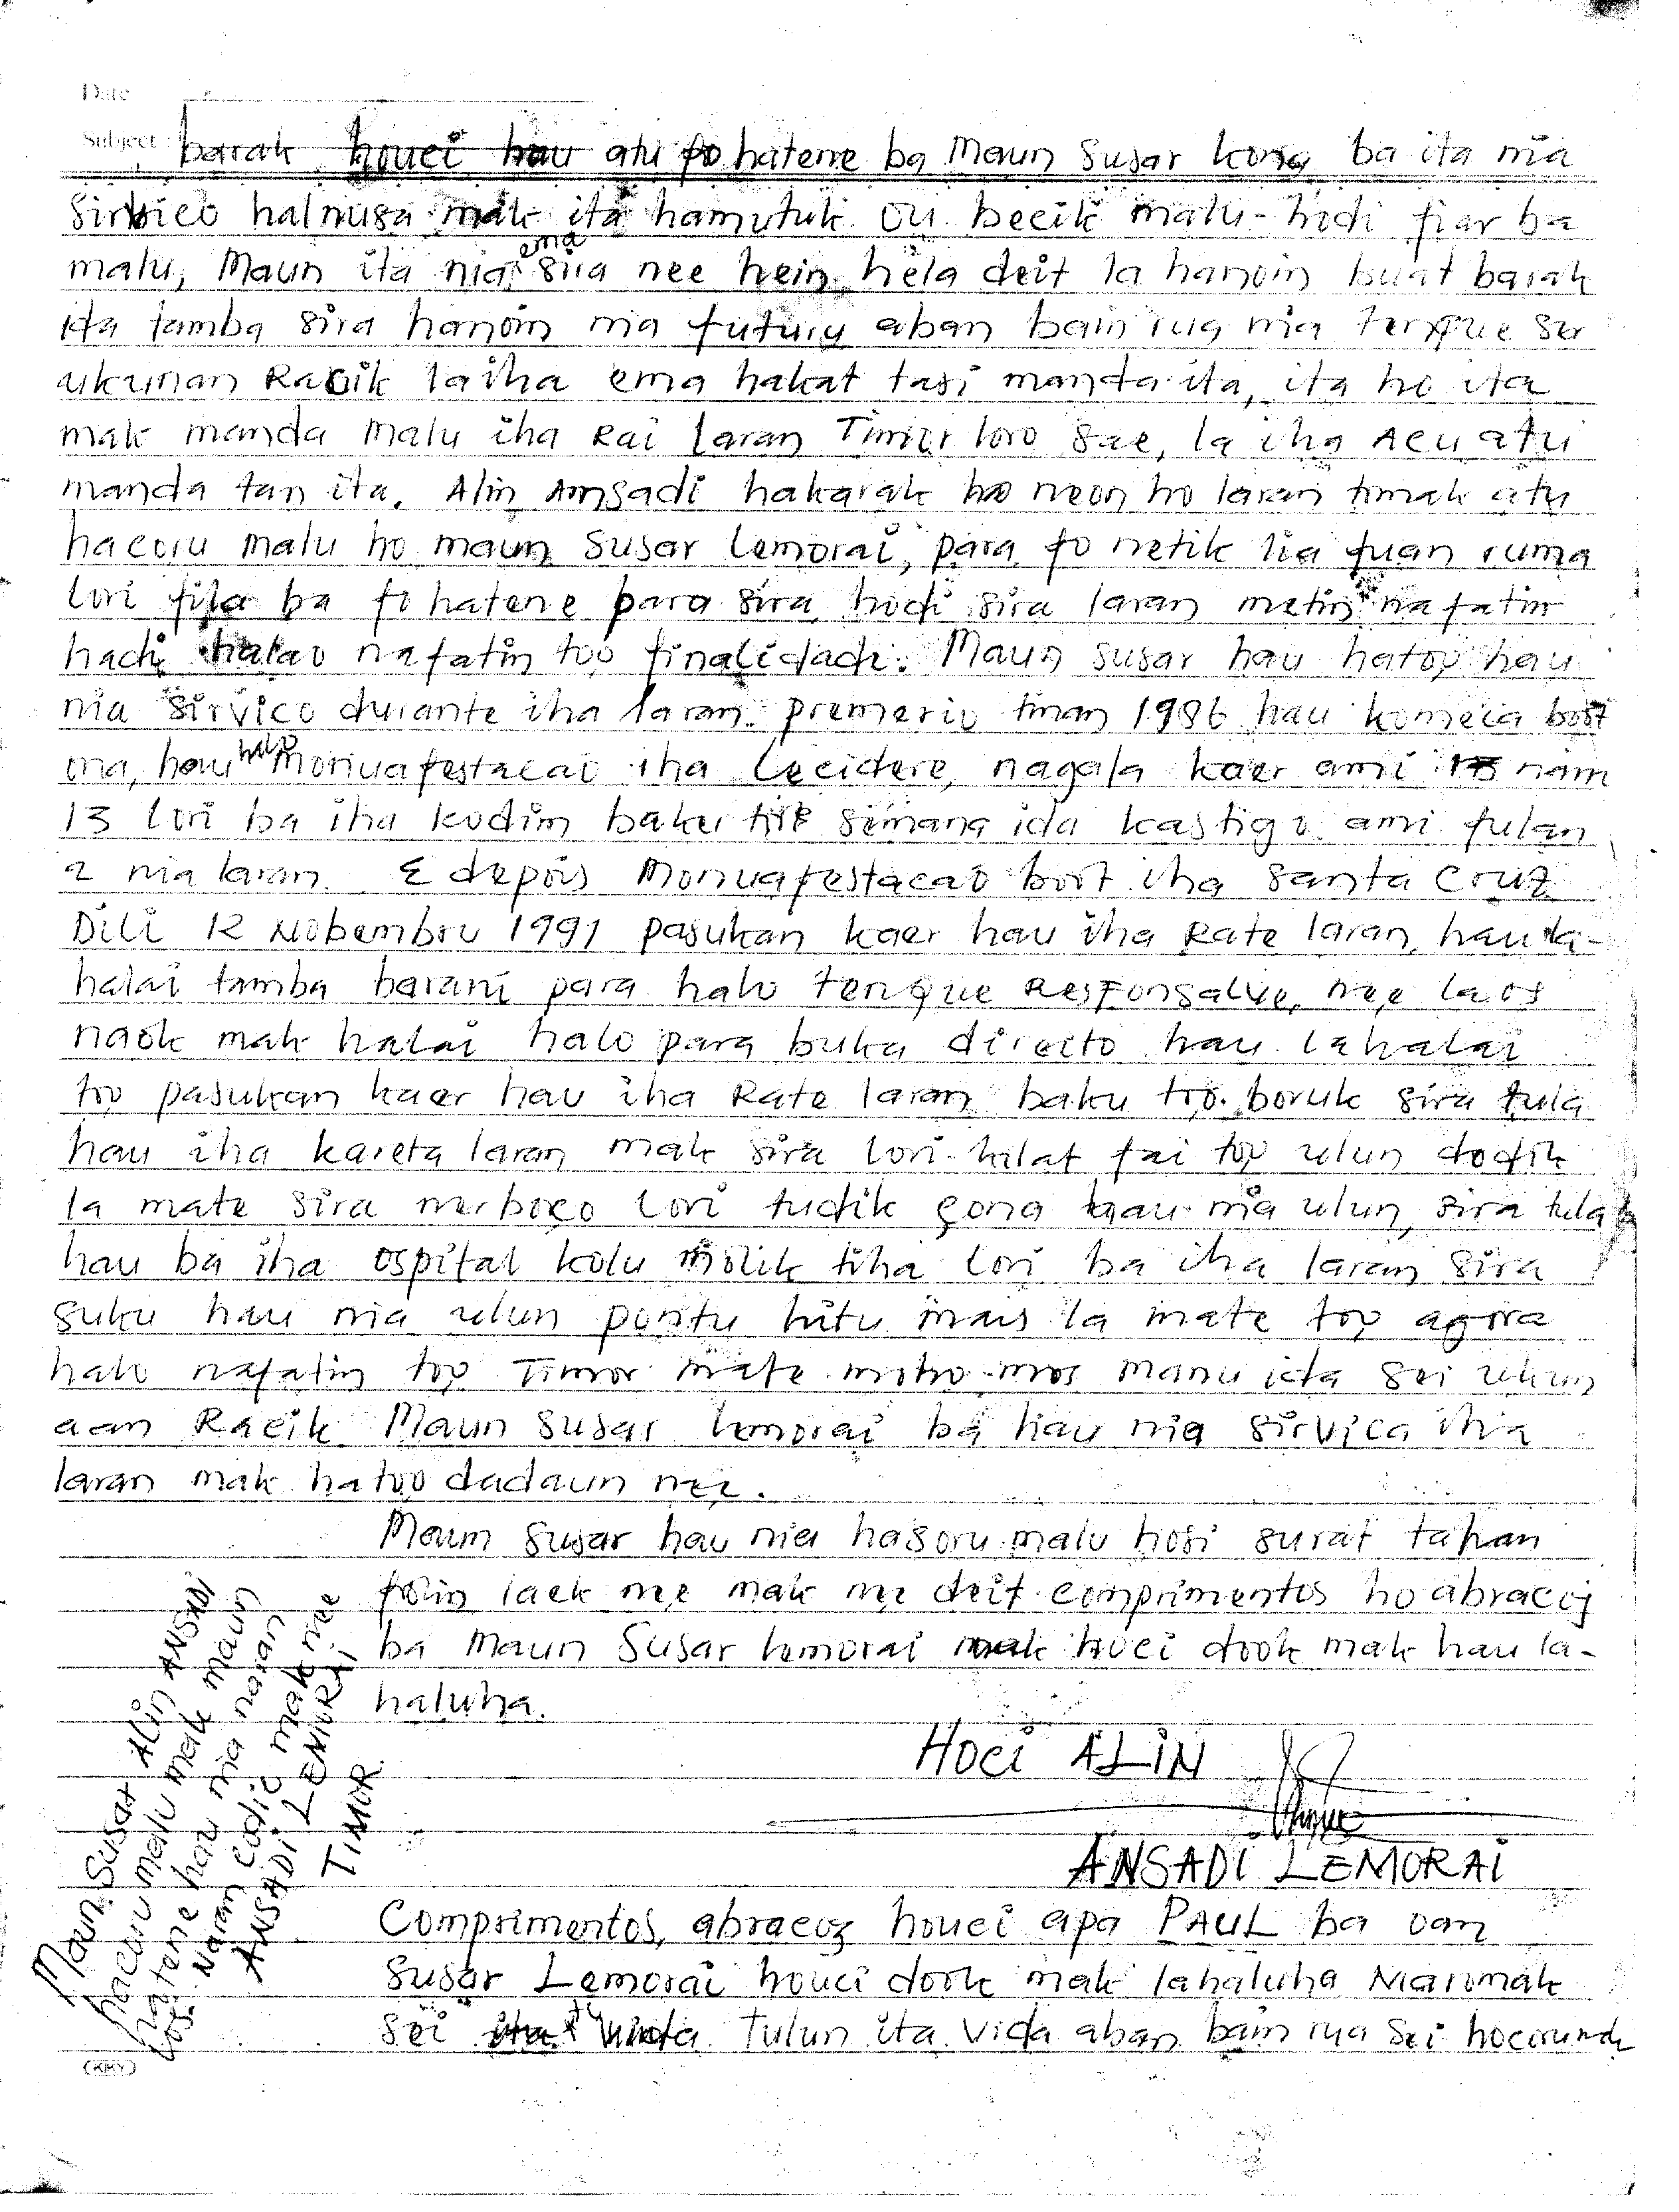 Date
Subject barak houci hau atu fo hatene ba Maun Susar kona ba ita nia
Sirvico halnusa mak ita hamutuk ou becik malu hodi fiar ba
malu, Maun ita nia ema sira nee hein hela deit la hanoin buat barak
ida tamba sira hanoin nia futuru aban bain rua nia terque ser
ukunan Racik laiha ema hakat tasi manda ita, ita ho ita
mak manda malu iha Rai laran Timor loro sae, la iha Acu atu
manda tan ita. Alin Ansadi hakarak ho neon ho laran tomak atu
hacoru malu ho maun Susar Lemorai, para fo netik lia fuan ruma
lori fila ba fo hatene para sira hodi sira laran metin nafatin
hadi halao nafatin too finalidade. Maun Susar hau hatoo hau
nia Sirvico durante iha laran premeriu tinan 1986 hau komeca boot
ona, hau halo Monuafestacao iha Lecidere, nagala kaer ami nain
13 lori ba iha kodim baku tiha Simana ida kastigo ami fulan
2 nia laran. E depois Monuafestacao boot iha Santa Cruz
Dili 12 Nobembru 1991 pasukan kaer hau iha Rate laran, hau la-
halai tamba barani para halo tenque Responsalve, nee laos
naok mak halai halo para buka direito hau lahalai
too pasukan kaer hau iha Rate laran baku too boruk sira tula
hau iha kareta laran mak sira lori kilat fai too ulun dodik
la mate sira nerboco lori tudik sona hau nia ulun, sira tula
hau ba iha ospital kolu molik tiha lori ba iha laran sira
suku hau nia ulun pontu hitu mais la mate too agora
halo nafatin too Timor mate mohu mos manu ida sei ukun
aan Racik. Maun Susar lemorai ba hau nia Sirvico iha
laran mak hatoo dadaun nee.
Maun Susar hau nia hasoru malu hosi surat tahan
folin laek nee mak nee deit comprimentos ho abracoj
ba Maun Susar lemorai houci dook mak hau la-
haluha.
Hoci ALIN
ANSADI LEMORAI
Maun Susar Alin ANSADI
hacoru malu mak maun
hatene hau nia naran
los. Naran codic mak nee
ANSADI LEMORAI
TIMOR.
Comprimentos, abracoz houci apa PAUL ba oan
Susar Lemorai houci dook mak lahaluha Maromak
sei Tulun ita Vida aban bain rua sei hocorundu
(KKY)